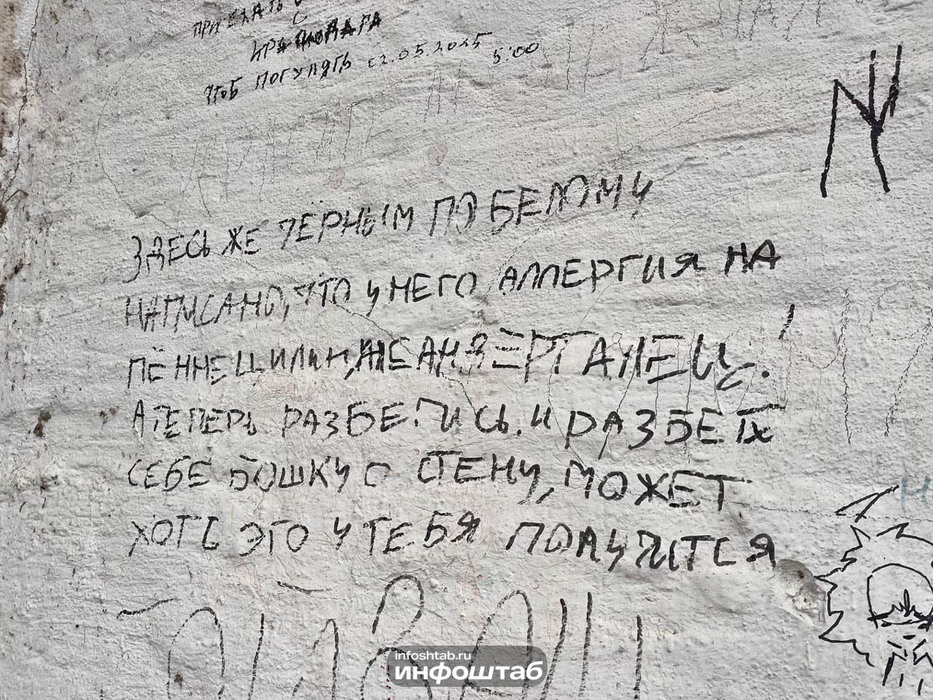 ПРИЕХАТЬ
С
КРАСНОДАРА
ЧТОБ ПОГУЛЯТЬ 02.05.2025 5:00
ЗДЕСЬ ЖЕ ЧЁРНЫМ ПО БЕЛОМУ
НАПИСАНО, ЧТО У НЕГО АЛЛЕРГИЯ НА
ПЁННЕЦИЛИН, ЖЕАН ВЕРГАЛЕЦ!
А ТЕПЕРЬ РАЗБЕГИСЬ. И РАЗБЕЙ
СЕБЕ БОШКУ О СТЕНУ, МОЖЕТ
ХОТЬ ЭТО У ТЕБЯ ПОЛУЧИТСЯ
infoshtab.ru
инфоштаб